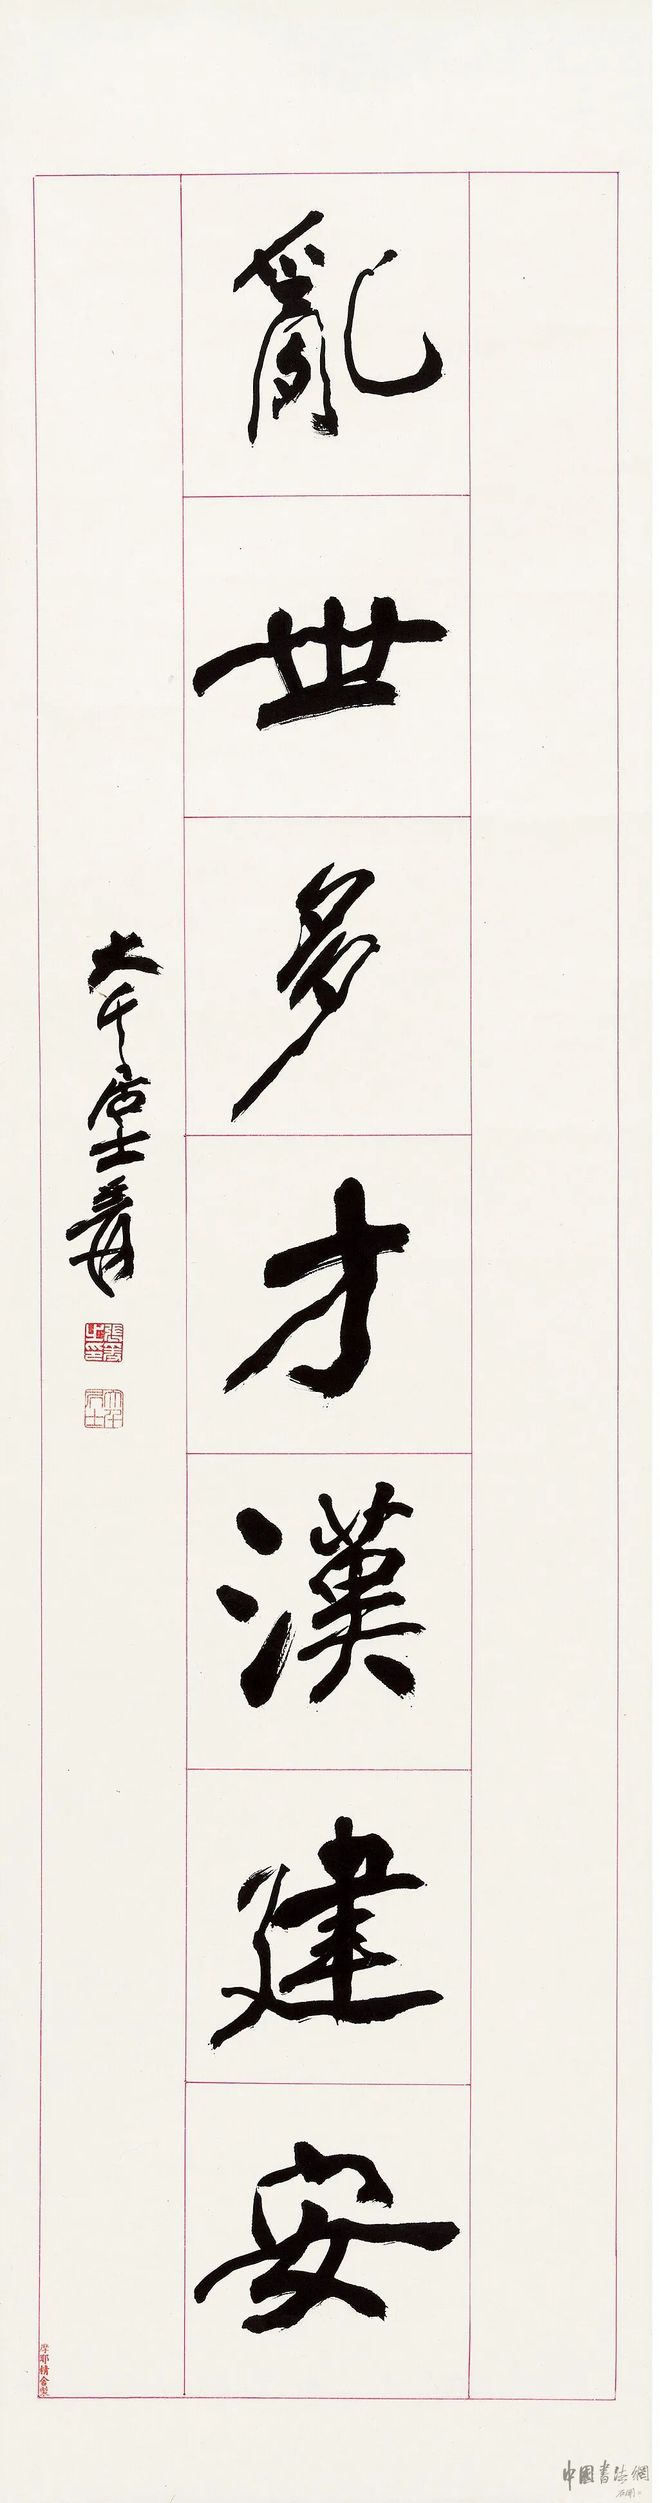 亂世多才漢建安
大千居士爰
張爰之印
大千居士
摩耶精舍製
中國書法網